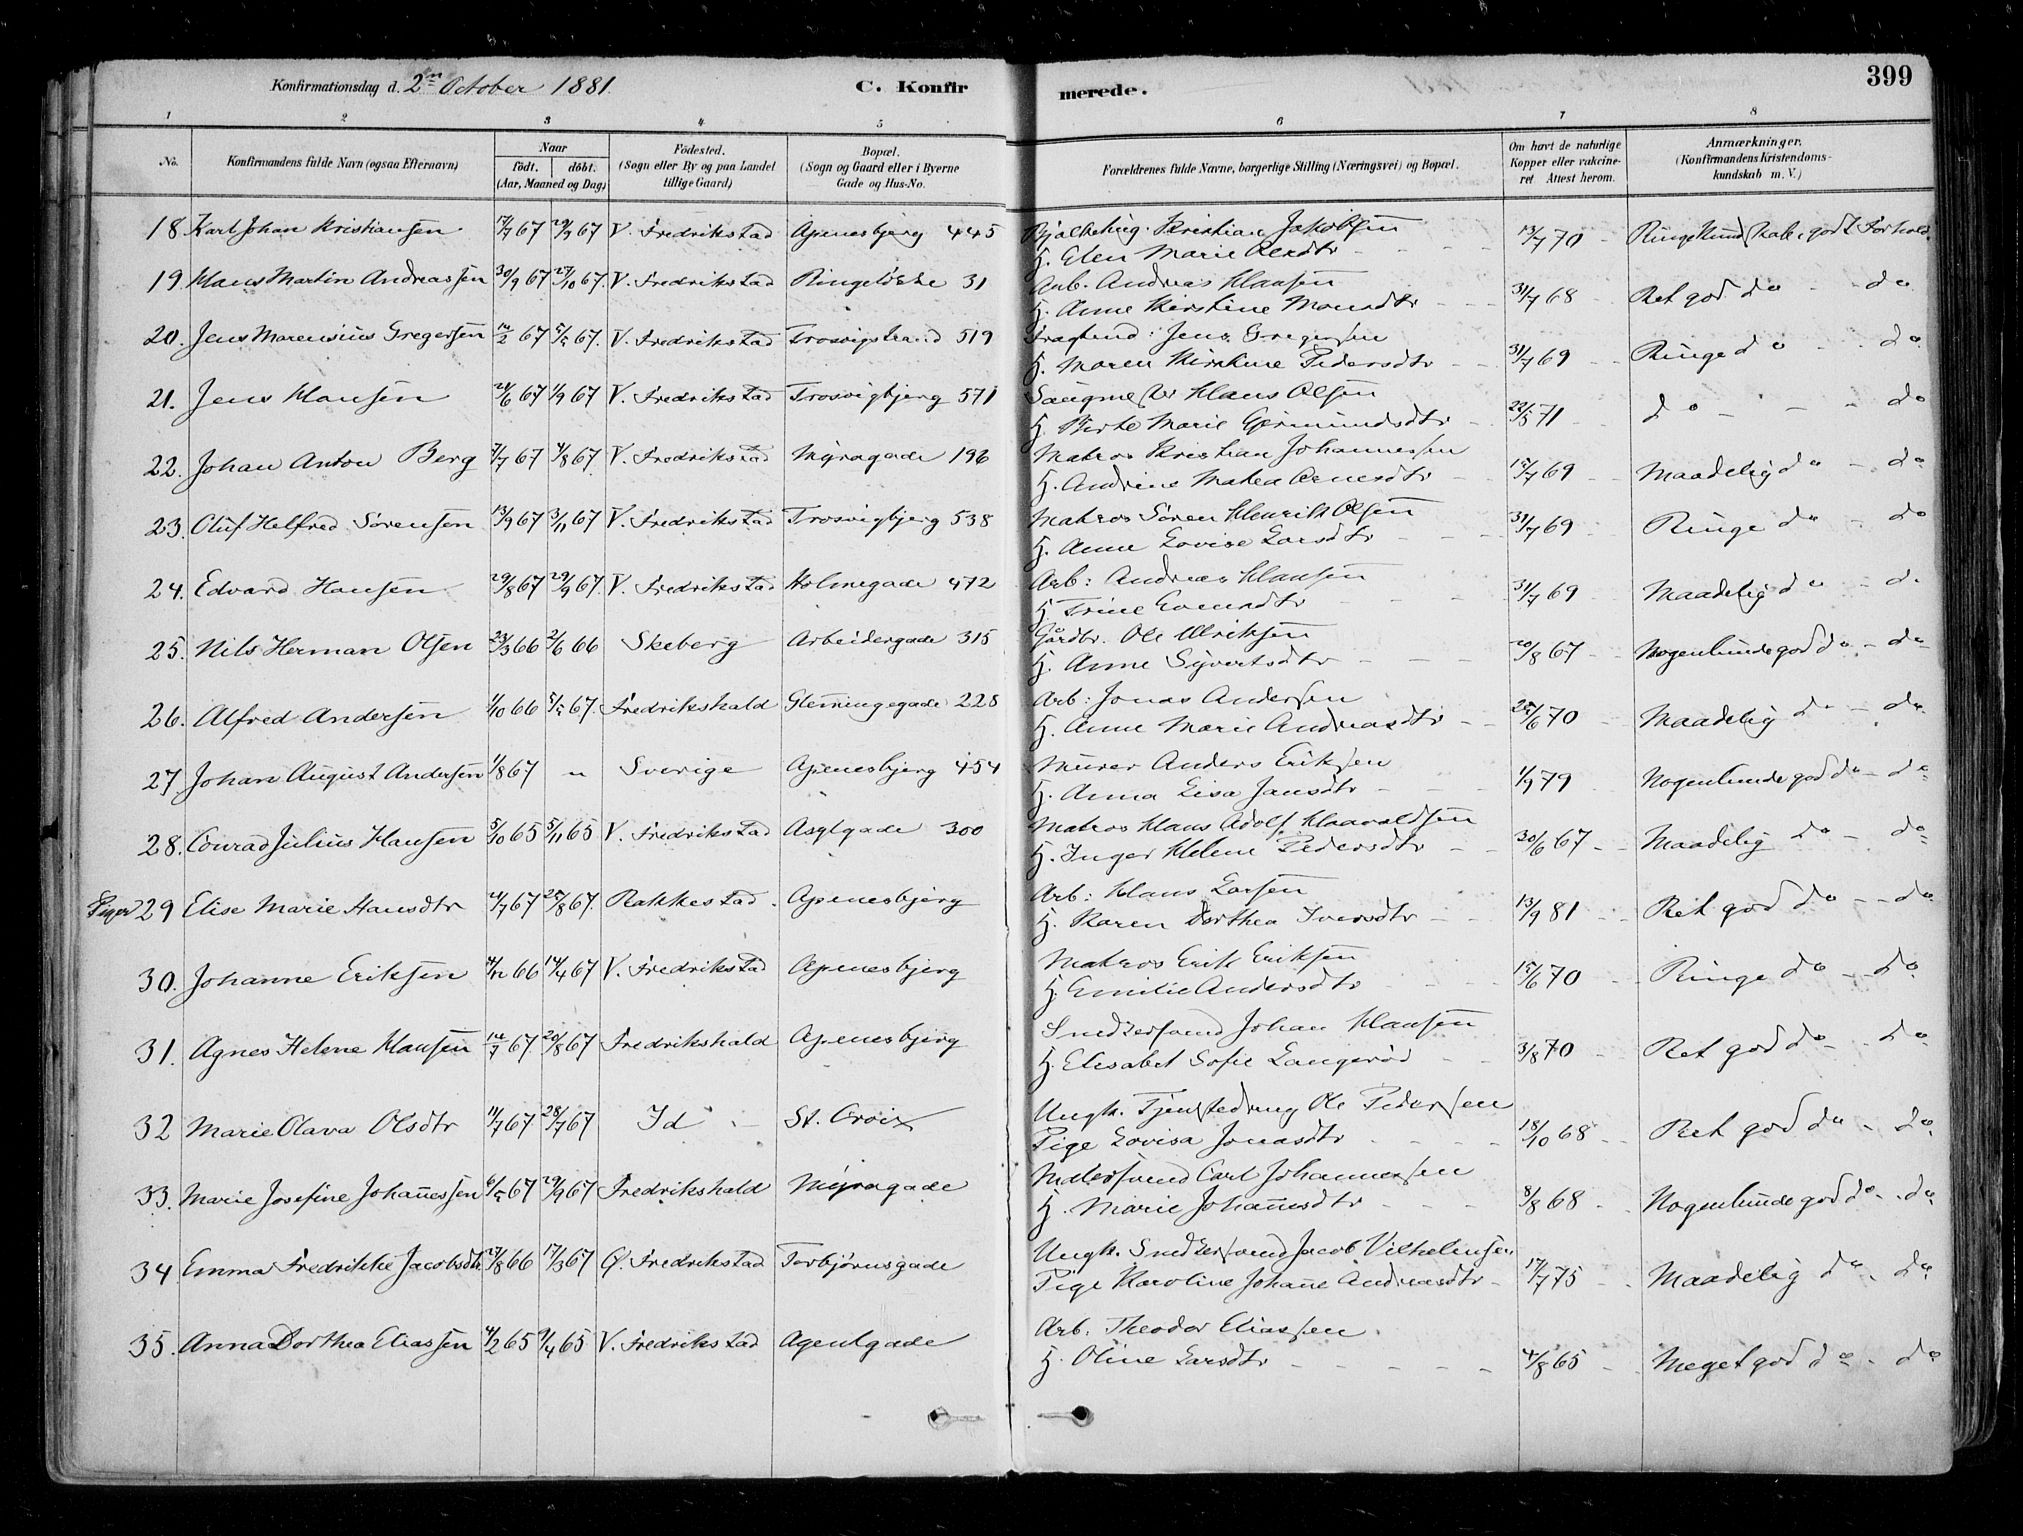 Konfirmationsdag d. 2n October 1881.
C. Konfirmerede.
399
1 2 3 4 5 6 7 8
No.
Konfirmandens fulde Navn (ogsaa Efternavn)
Naar
födt. döbt.
(Aar, Maaned og Dag)
Födested.
(Sogn eller By og paa Landet
tillige Gaard)
Bopæl.
(Sogn og Gaard eller i Byerne
Gade og Hus-No.
Forældrenes fulde Navne, borgerlige Stilling (Næringsvei) og Bopæl.
Om havt de naturlige
Kopper eller vakcine-
ret Attest herom.
Anmærkninger.
(Konfirmandens Kristendoms-
kundskab m. V.)
18 Karl Johan Kristiansen 17/7 67 29/9 67 V. Fredrikstad Apenesbjerg 445 Kristian Jakobsen
H. Elen Marie 13/7 70 Ringe Kundskab, godt Forhold.
19. Hans Martin Andreassen 30/9 67 27/10 67. V. Fredrikstad Ringelökke 31 Arb. Andreas Hansen
H. Anne Kirstine Monsdtr 31/7 68 Ret god do - do
20. Jens Marensius Gregersen 12/2 67 5/5 67. V. Fredrikstad Trosvigstrand 519 Jens Gregersen
H. Maren Kirstine Pedersdtr 31/7 69 Ringe do - do
21. Jens Hansen 24/6 67 1/9 67 V. Fredrikstad Trosvigbjerg 571 Saugmester Hans Olsen
H. Berte Marie Gjermundsdtr 22/5 71 do - - do
22. Johan Anton Berg 7/7 67 4/8 67. V. Fredrikstad Myragade 196 Matros Kristian Johannessen
H. Andrine Matea Arnesdtr 12/7 69 Maadelig do - do
23. Oluf Helfred Sörensen 13/9 67 3/11 67 V. Fredrikstad Trosvigbjerg 538 Matros Sören Henrik Olsen
H. Anne Lovise Larsdtr 31/7 69 Ringe do - do
24. Edvard Hansen 29/8 67 29/9 67. V. Fredrikstad Holmegade 472 Arb: Andreas Hansen
H. Trine Evensdtr 31/7 69 Maadelig do - do
25. Nils Herman Olsen 23/3 66 2/6 66 Skeberg Arbeidergade 315 Gårdbr. Ole Ulriksen
H. Anne Syvertsdtr 20/8 67 Nogenlunde god do - do
26. Alfred Andersen 1/10 66 5/5 67. Fredrikshald Glemmingegade 228 Arb: Jonas Andersen
H. Anne Marie Andreasdtr 25/6 70 Maadelig do - do
27. Johan August Andersen 1/8 67 " Sverige Apenesbjerg 454 Murer Anders Eriksen
H. Anna Lisa Jansdtr 1/9 79 Nogenlunde god do - do
28. Conrad Julius Hansen 5/10 65 5/11 65 V. Fredrikstad Asylgade 300 Matros Hans Adolf Haavaldsen
H. Inger Helene Pedersdtr 30/6 67 Maadelig do - do
Piger 29 Elise Marie Hansdtr 21/7 67 25/8 67. Rakkestad. Apenesbjerg Arb: Hans Larsen
H. Karen Dorthea Iversdtr 13/9 81 Ret god do - do
30. Johanne Eriksen 4/12 66 14/4 67 V. Fredrikstad Apenesbjerg Matros Erik Eriksen
H. Emilie Andersdtr 15/6 70 Ringe do - do
31. Agnes Helene Hansen 12/7 67. 20/8 67 Fredrikshald Apenesbjerg Snedkersvend Johan Hansen
H. Elisabet Sofie Langeröd 3/8 70 Ret god do - do
32 Marie Olava Olsdtr 11/7 67 28/7 67 Id St. Croix Ungk. Tjenestedreng Ole Pedersen
Pige Lovisa Jonasdtr 18/10 68 Ret god do - do
33. Marie Josefine Johannessen 6/5 67 29/9 67 Fredrikshald Myragade Malersvend Carl Johannessen
H. Marie Johannesdtr 8/8 68 Nogenlunde god do - do
34 Emma Fredrikke Jacobsdtr 27/8 66 17/3 67 Ø. Fredrikstad Torbjörnsgade Ungk. Snedkersvend Jacob Vilhelmsen
Pige Karoline Johanne Andreasdtr 17/7 75 Maadelig do - do
35. Anna Dorthea Eliassen 4/2 65 9/4 65 V. Fredrikstad Agentgade Arb. Theodor Eliassen
H. Oline Larsdtr 4/8 65 Meget god do - do